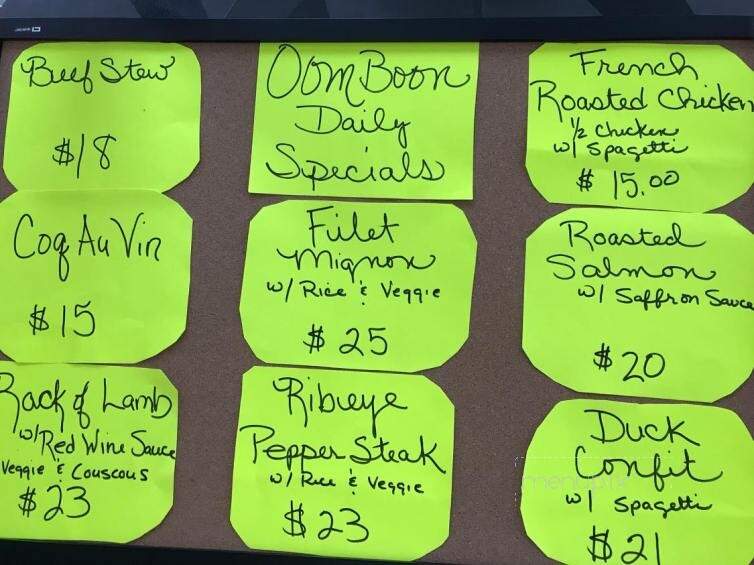 Beef Stew
$18
Oom Boon
Daily
Specials
French
Roasted Chicken
1/2 Chicken
w/ Spagetti
$ 15.00
Coq Au Vin
$15
Filet
Mignon
w/ Rice & Veggie
$ 25
Roasted
Salmon
w/ Saffron Sauce
$20
Rack of Lamb
w/ Red Wine Sauce
Veggie & Couscous
$23
Ribeye
Pepper Steak
w/ Rice & Veggie
$23
Duck
Confit
w/ Spagetti
$21